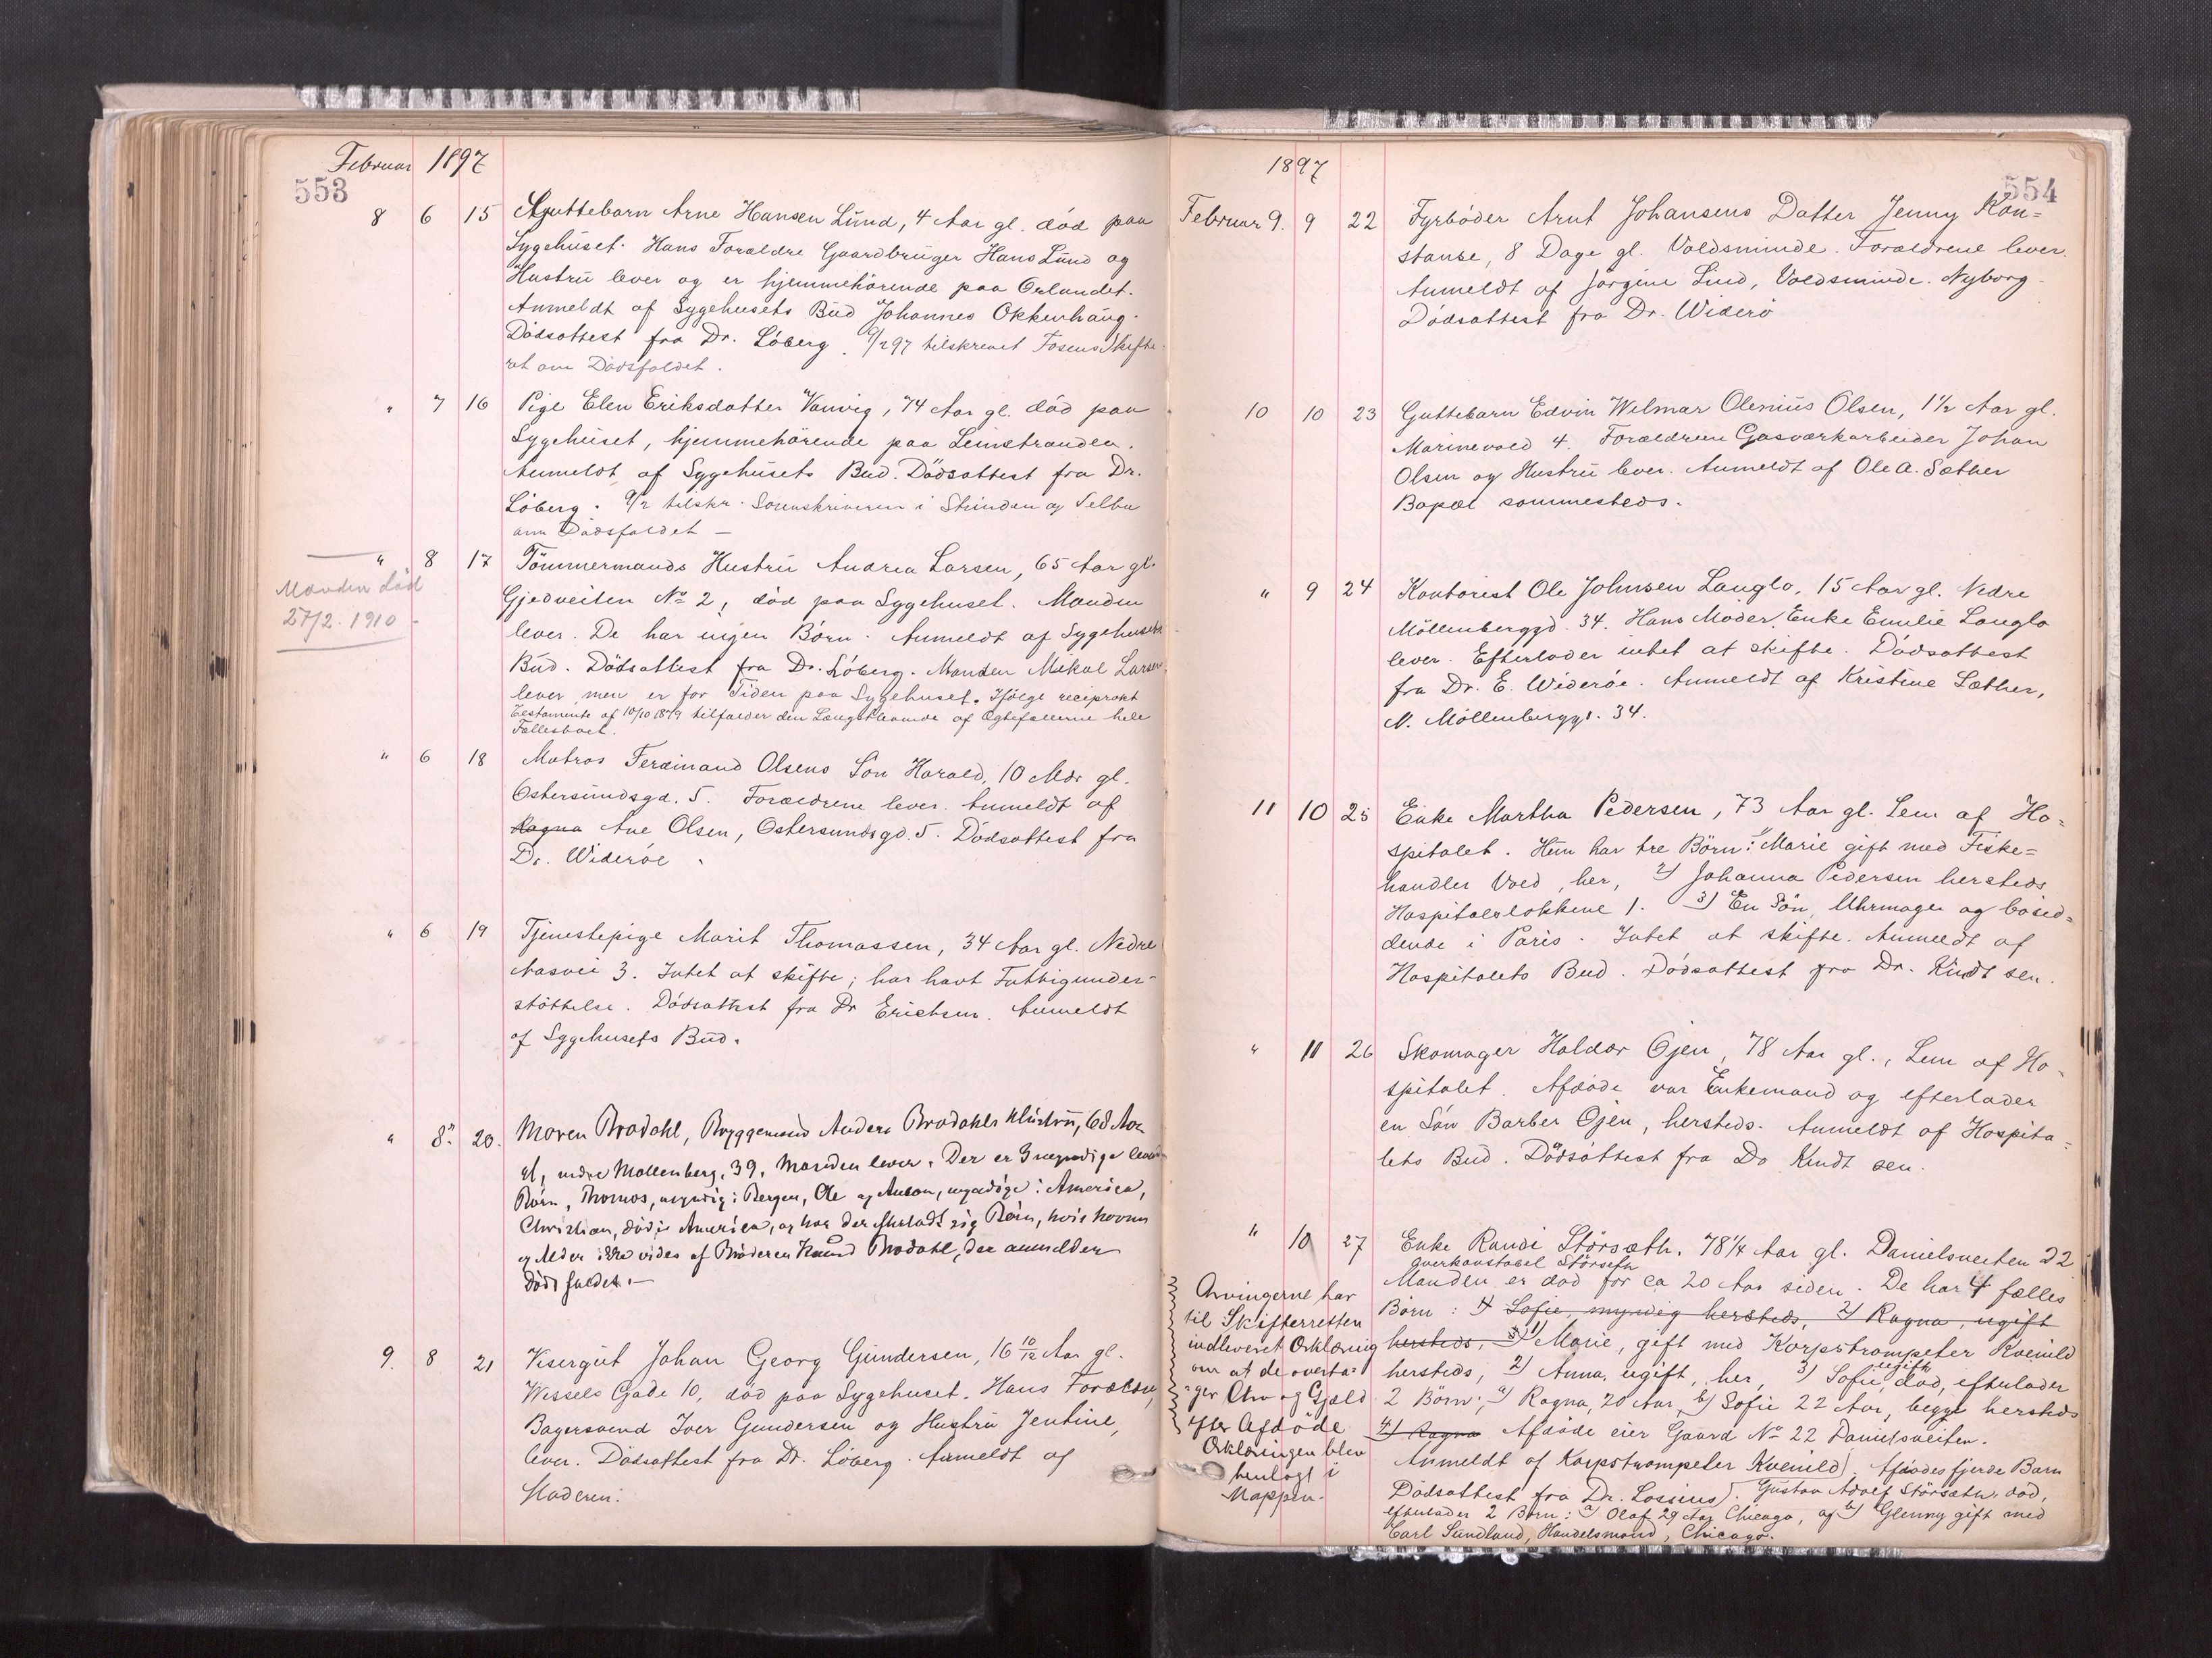 Februar 1897
553
8 6 15 Guttebarn Arne Hansen Lund, 4 Aar gl. död paa
Sygehuset. Hans Forældre Gaardbruger Hans Lund og
Hustru lever og er hjemmehörende paa Örlandet.
Anmeldt af Sygehusets Bud Johannes Okkenhaug.
Dödsattest fra Dr. Löberg. 9/2 97 tilskrevet Fosens Skifte-
ret om Dödsfaldet.
" 7 16 Pige Elen Eriksdatter Vanvig, 74 Aar gl. död paa
Sygehuset, hjemmehörende paa Leinstranden.
Anmeldt af Sygehusets Bud. Dödsattest fra Dr.
Löberg. 9/2 tilskr. Sorenskriveren i Strinden og Selbu
om Dödsfaldet —
" 8 17 Tömmermands Hustru Andrea Larsen, 65 Aar gl.
Manden död
27/2. 1910
Gjedveiten No 2, död paa Sygehuset. Manden
lever. De har ingen Börn. Anmeldt af Sygehusets
Bud. Dödsattest fra Dr. Löberg. Manden Mikal Larsen
lever men er for Tiden paa Sygehuset. Ifölge reciprokt
Testamente af 10/10 1879 tilfalder den Længstlevende af Ægtefællerne hele
Fællesboet.
" 6 18 Matros Ferdinand Olsens Sön Harald, 10 Mdr gl.
Östersundsgd. 5. Forældrene lever. Anmeldt af
Ragna Ane Olsen, Östersundsgd. 5. Dödsattest fra
Dr. Wideröe.
" 6 19 Tjenestepige Marit Thomassen, 34 Aar gl. Nedre
Aasvei 3. Intet at skifte; har havt Fattigunder-
stöttelse. Dödsattest fra Dr Erichsen. Anmeldt
af Sygehusets Bud.
" 8. 20. Maren Brodahl, Bryggemand Anders Brodahls Hustru, 68 Aar
gl, nedre Mollenberg, 39. Manden lever. Der er 3 myndige
Börn, Thomas, myndig i Bergen, Ole og Anton, myndige i Amerika,
Christian, död i Amerika, og har der efterladt sig Börn, hvis Navne
og Alder ikke vides af Broderen Knud Brodahl, der anmelder
Dödsfaldet.—
9. 8 21 Visergut Johan Georg Gundersen, 16 10/12 Aar gl.
Wessels Gade 10, död paa Sygehuset. Hans Forældre,
Bagersvend Iver Gundersen og Hustru Jentine,
lever. Dödsattest fra Dr. Löberg. Anmeldt af
Moderen.
1897
554
Februar 9. 9 22 Fyrböder Arnt Johansens Datter Jenny Kon=
stanse, 8 Dage gl. Voldsminde. Forældrene lever.
Anmeldt af Jörgine Lind, Voldsminde. Nyborg.
Dödsattest fra Dr. Widerö
10 10 23 Guttebarn Edvin Wilmar Olenius Olsen, 1 1/2 Aar gl.
Marinevold 4. Forældrene Gasværkarbeider Johan
Olsen og Hustru lever. Anmeldt af Ole A. Sæther
Bopæl sammesteds.
" 9 24 Kontorist Ole Johnsen Langlo, 15 Aar gl. Nedre
Möllenberggd. 34. Hans Moder, Enke Emilie Langlo
lever. Efterlader intet at skifte. Dödsattest
fra Dr. E. Wideröe. Anmeldt af Kristine Sæther,
N. Möllenberggd. 34.
11 10 25 Enke Martha Pedersen, 73 Aar gl. Lem af Ho=
spitalet. Hun har tre Börn: 1) Marie gift med Fiske=
handler Vold, her, 2) Johanna Pedersen hersteds
Hospitalslökkene 1. 3) En Sön, Uhrmager og bosid=
dende i Paris. Intet at skifte. Anmeldt af
Hospitalets Bud. Dödsattest fra Dr. Kindt sen.
" 11 26 Skomager Haldor Öjen, 78 Aar gl., Lem af Ho=
spitalet. Afdöde var Enkemand og efterlader
en Sön Barber Öjen, hersteds. Anmeldt af Hospita=
lets Bud. Dödsattest fra Dr Kindt sen.
" 10 27 Enke Randi Störsæth, 78 1/4 Aar gl. Danielsveiten 22
Overkonstabel Störseth
Manden er död for ca 20 Aar siden. De har 4 fælles
Börn: 1) Sofie, myndig hersteds, 2) Ragna, ugift
hersteds, 3) 1) Marie, gift med Korpstrompeter Kvenild
hersteds, 2) Anna, ugift, her, 3) Sofie, ugift, död, efterlader
2 Börn: a) Ragna, 20 Aar, b) Sofie 22 Aar, begge hersteds
4) Ragna Afdöde eier Gaard No 22 Danielsveiten.
Anmeldt af Korpstrompeter Kvenild. Afdödes fjerde Barn
Dödsattest fra Dr. Lossius. Gustav Adolf Störsæth, död,
efterlader 2 Börn: a) Olaf 29 Aar Chicago, og b) Glenny gift med
Carl Sundland, Handelsmand, Chicago.
Arvingerne har
til Skifteretten
indleveret Erklæring
om at de overta=
ger Arv og Gjæld
efter Afdöde
Erklæringen blev
henlagt i
Mappen.